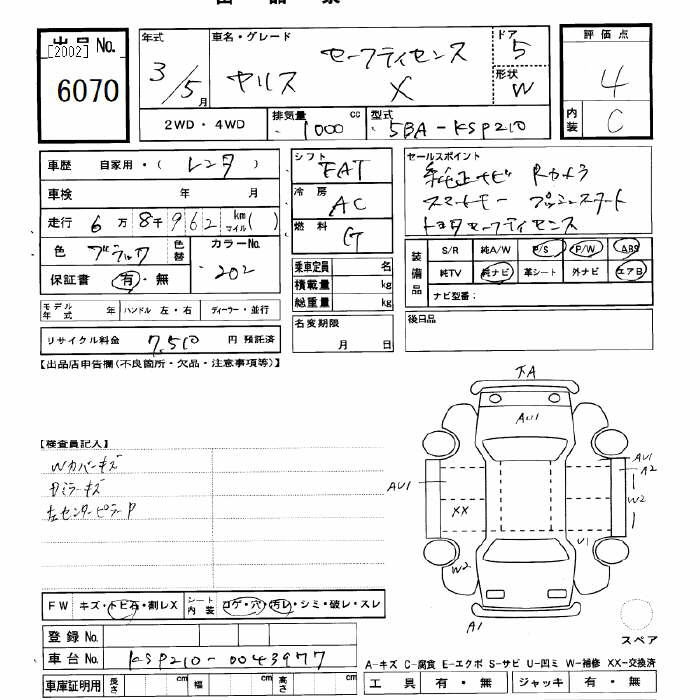 出品票
出品 No.
[2002]
6070
年式
3/5月
車名・グレード
セーフティセンス
ヤリス X
ドア
5
形状
W
評価点
4
内装
C
2WD・4WD
排気量
1000 cc
型式
5BA-KSP210
車歴 自家用・( レンタ )
車検 年 月
走行 6万 8千 962 km マイル ( )
色 ブラック
色替
カラーNo.
202
保証書 有・無
モデル年式 年 ハンドル 左・右 ディーラー・並行
リサイクル料金 7,510 円 預託済
シフト FAT
冷房 AC
燃料 G
乗車定員 名
積載量 kg
総重量 kg
名変期限
月 日
セールスポイント
純正ナビ Rカメラ
スマートキー プッシュスタート
トヨタセーフティセンス
装備品
S/R 純A/W P/S P/W ABS
純TV 純ナビ 革シート 外ナビ エアB
ナビ型番:
後日品
【出品店申告欄(不良箇所・欠品・注意事項等)】
【検査員記入】
Wカバーキズ
Rミラーキズ
左センターピラーP
下A
AU1
AU1
AU1
A2
XX
W2
U1
W2
A1
スペア
FW キズ・トビ石・割レX
シート内装 コゲ・穴・汚レ・シミ・破レ・スレ
登録 No.
車台 No. KSP210-0043977
車庫証明用 長さ cm 幅 cm 高さ cm
A-キズ C-腐食 E-エクボ S-サビ U-凹ミ W-補修 XX-交換済
工具 有・無 ジャッキ 有・無